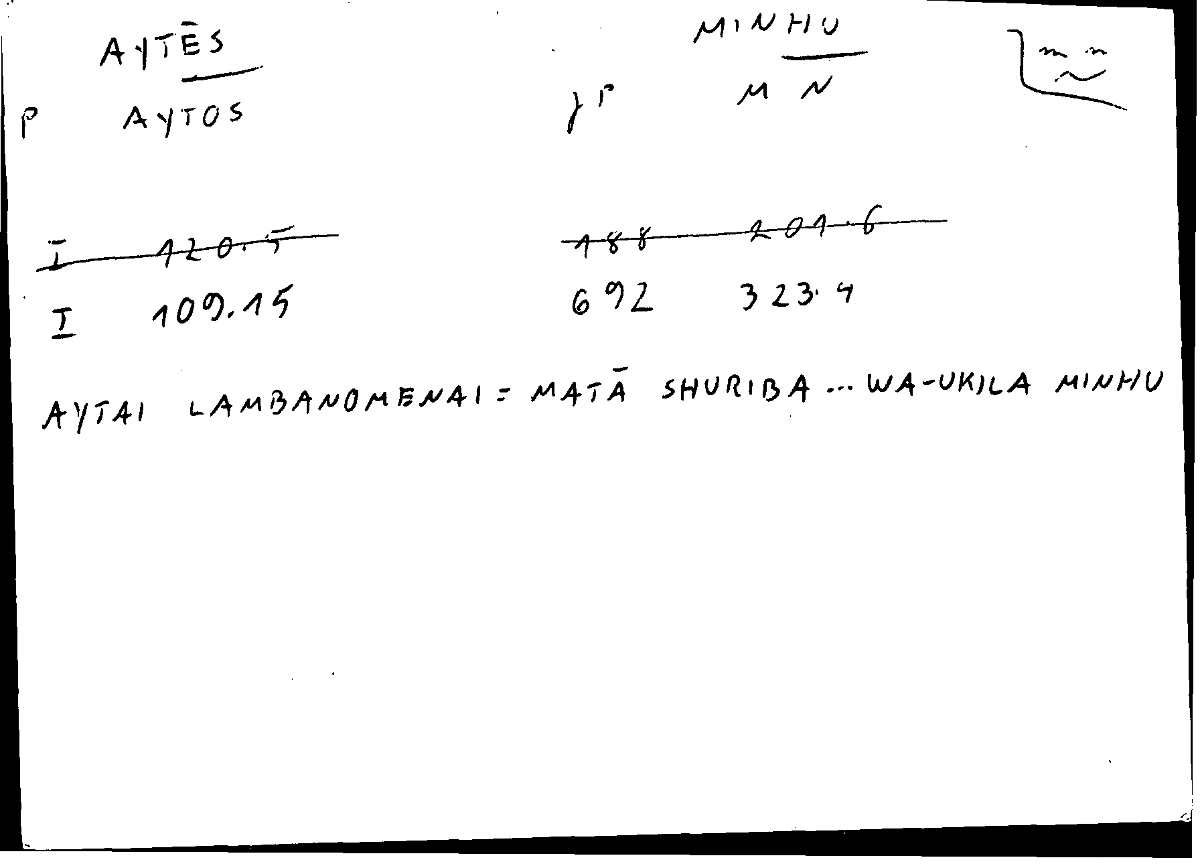 AYTĒS MINHU
P AYTOS M N
I 120.5 188 201.6
I 109.15 692 323.4
AYTAI LAMBANOMENAI = MATĀ SHURIBA ... WA-UKILA MINHU